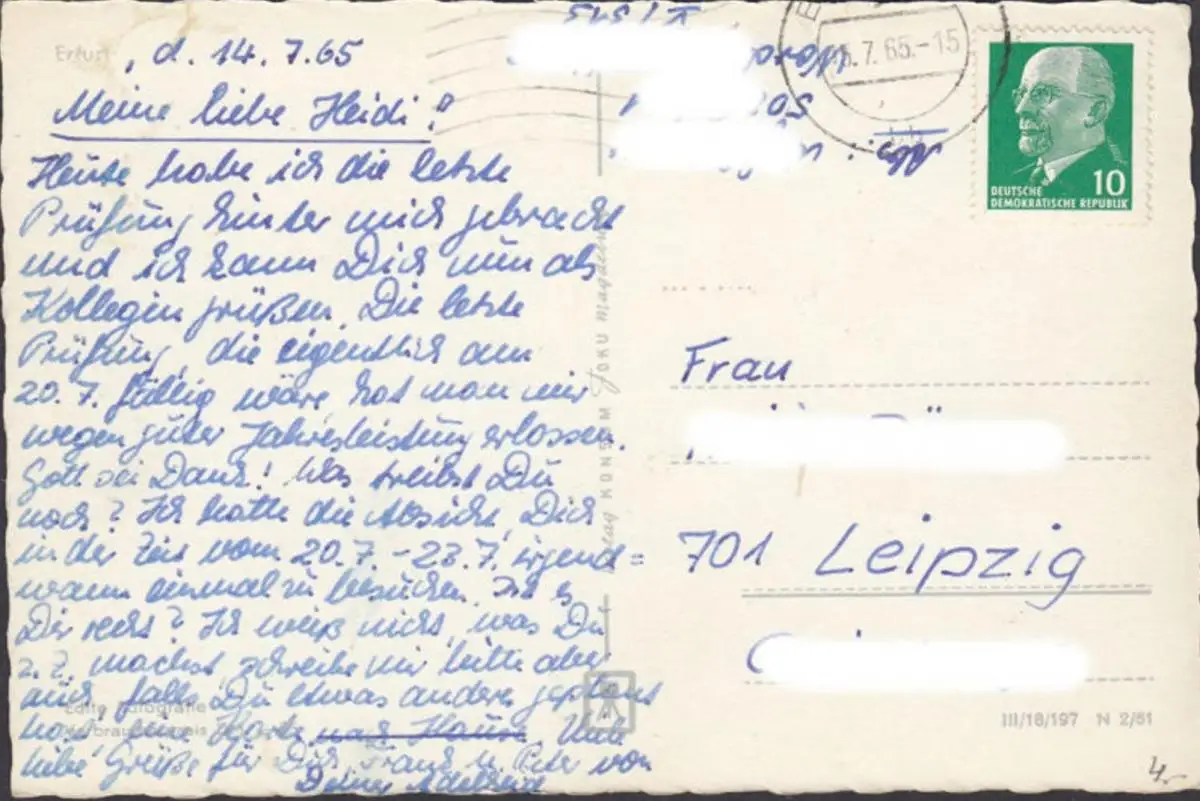 Erfurt, d. 14.7.65
Meine liebe Heidi!
Heute habe ich die letzte
Prüfung hinter mich gebracht
und ich kann Dich nun als
Kollegin grüßen. Die letzte
Prüfung, die eigentlich am
20.7. fällig wäre, hat man mir
wegen guter Jahresleistung erlassen.
Gott sei Dank! Was treibst Du
noch? Ich hatte die Absicht, Dich
in der Zeit vom 20.7. - 27.7. irgend=
wann einmal zu besuchen. Ist es
Dir recht? Ich weiß nicht, was Du
z. Z. machst, schreibe mir bitte aber
auch, falls Du etwas anderes geplant
hast, eine Karte nach Hause. Viele
liebe Grüße für Dich, Frank u. Peter von
Deiner Adelheid
Echte Fotografie
.7.65.-15
DEUTSCHE
DEMOKRATISCHE REPUBLIK
10
Abs.:
KONSUM FOKU Magdeburg
Frau
701 Leipzig
III/18/197 N 2/61
4,-